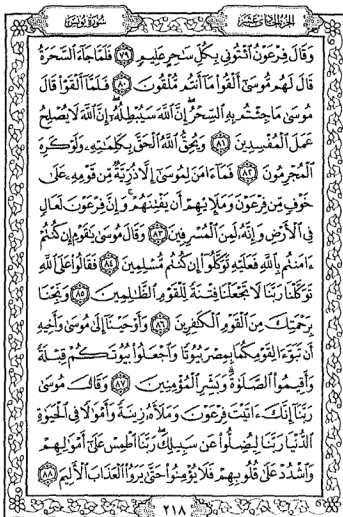 الجزء الحادي عشر
سورة يونس
وَقَالَ فِرْعَوْنُ ائْتُونِي بِكُلِّ سَاحِرٍ عَلِيمٍ ٧٩ فَلَمَّا جَاءَ السَّحَرَةُ
قَالَ لَهُم مُّوسَىٰ أَلْقُوا مَا أَنتُم مُّلْقُونَ ٨٠ فَلَمَّا أَلْقَوْا قَالَ
مُوسَىٰ مَا جِئْتُم بِهِ السِّحْرُ إِنَّ اللَّهَ سَيُبْطِلُهُ إِنَّ اللَّهَ لَا يُصْلِحُ
عَمَلَ الْمُفْسِدِينَ ٨١ وَيُحِقُّ اللَّهُ الْحَقَّ بِكَلِمَاتِهِ وَلَوْ كَرِهَ
الْمُجْرِمُونَ ٨٢ فَمَا ءَامَنَ لِمُوسَىٰ إِلَّا ذُرِّيَّةٌ مِّن قَوْمِهِ عَلَىٰ
خَوْفٍ مِّن فِرْعَوْنَ وَمَلَإِيْهِمْ أَن يَفْتِنَهُمْ وَإِنَّ فِرْعَوْنَ لَعَالٍ
فِي الْأَرْضِ وَإِنَّهُ لَمِنَ الْمُسْرِفِينَ ٨٣ وَقَالَ مُوسَىٰ يَٰقَوْمِ إِن كُنتُمْ
ءَامَنتُم بِاللَّهِ فَعَلَيْهِ تَوَكَّلُوا إِن كُنتُم مُّسْلِمِينَ ٨٤ فَقَالُوا عَلَى اللَّهِ
تَوَكَّلْنَا رَبَّنَا لَا تَجْعَلْنَا فِتْنَةً لِّلْقَوْمِ الظَّٰلِمِينَ ٨٥ وَنَجِّنَا
بِرَحْمَتِكَ مِنَ الْقَوْمِ الْكَٰفِرِينَ ٨٦ وَأَوْحَيْنَا إِلَىٰ مُوسَىٰ وَأَخِيهِ
أَن تَبَوَّءَا لِقَوْمِكُمَا بِمِصْرَ بُيُوتًا وَاجْعَلُوا بُيُوتَكُمْ قِبْلَةً
وَأَقِيمُوا الصَّلَوٰةَ وَبَشِّرِ الْمُؤْمِنِينَ ٨٧ وَقَالَ مُوسَىٰ
رَبَّنَا إِنَّكَ ءَاتَيْتَ فِرْعَوْنَ وَمَلَأَهُ زِينَةً وَأَمْوَٰلًا فِي الْحَيَوٰةِ
الدُّنْيَا رَبَّنَا لِيُضِلُّوا عَن سَبِيلِكَ رَبَّنَا اطْمِسْ عَلَىٰ أَمْوَٰلِهِمْ
وَاشْدُدْ عَلَىٰ قُلُوبِهِمْ فَلَا يُؤْمِنُوا حَتَّىٰ يَرَوُا الْعَذَابَ الْأَلِيمَ ٨٨
٢١٨